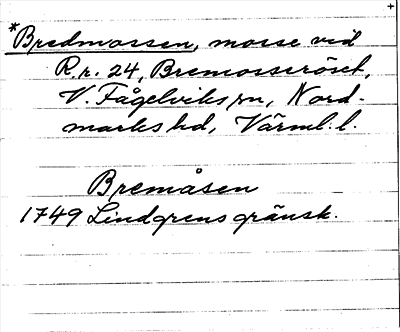 +
*Bredmossen, mosse vid
R.r. 24, Bremosseröset,
V. Fågelviks sn, Nord-
marks hd, Värml. l.
Bremåsen
1749 Lindgrens gränsk.